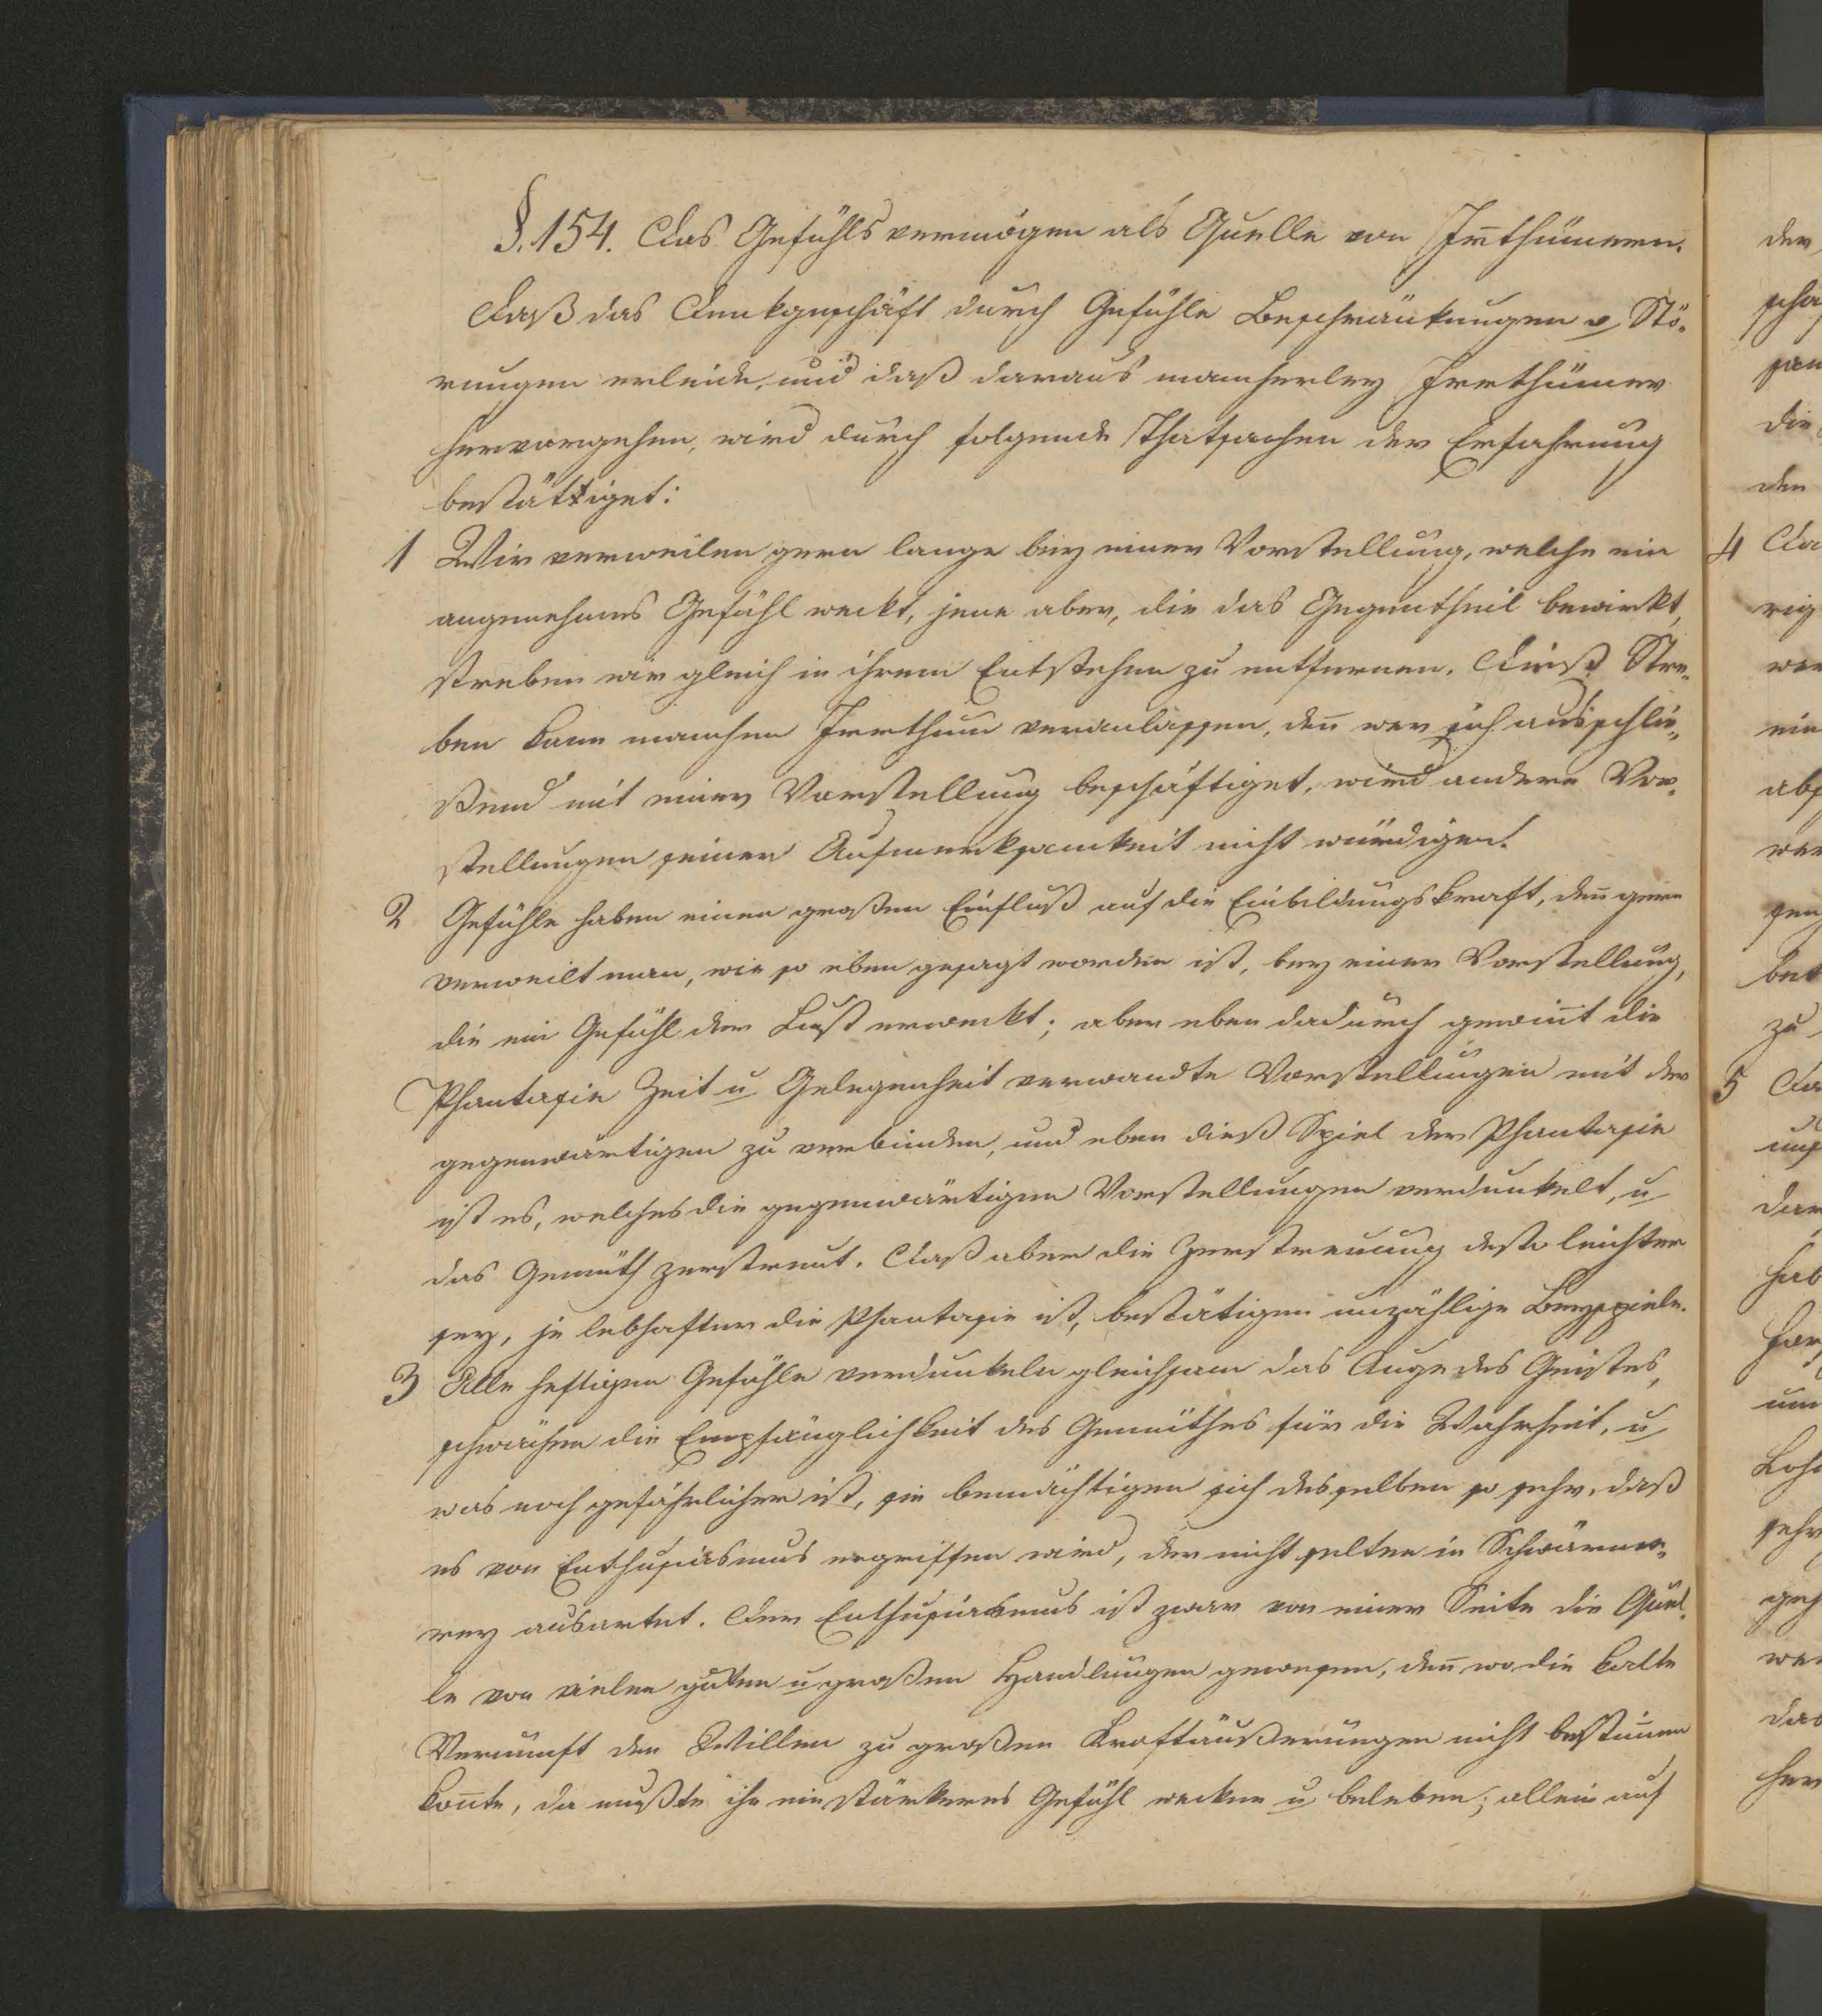 §. 154. Das Gefühlsvermögen als Quelle von Irrthümern.
Daß das Denkgeschäft durch Gefühle Beschränkungen u Stö-
rungen erleide, und daß daraus mancherley Irrthümer
hervorgehen, wird durch folgende Thatsachen der Erfahrung
bestättiget:
1 Wir verweilen gern lange bey einer Vorstellung, welche ein
angenehmes Gefühl weckt, jene aber, die das Gegentheil bewirkt,
streben wir gleich in ihrem Entstehen zu entfernen. Dieß Stre-
ben kann manchen Irrthum veranlassen, den̄ wer sich ausschlie-
ßend mit einer Vorstellung beschäftiget, wird andere Vor-
stellungen seiner Aufmerksamkeit nicht würdigen.
2 Gefühle haben einen großen Einfluß auf die Einbildungskraft, den̄ gern
verweilt man, wie so eben gesagt worden ist, bey einer Vorstellung,
die ein Gefühl der Lust erweckt; aber eben dadurch gewin̄t die
Phantasie Zeit u Gelegenheit verwandte Vorstellungen mit der
gegenwärtigen zu verbinden, und eben dieß Spiel der Phantasie
ist es, welches die gegenwärtigen Vorstellungen verdunkelt, u
das Gemüth zerstreut. Daß aber die Zerstreuung desto leichter
sey, je lebhafter die Phantasie ist, bestätigen unzählige Beyspiele.
3 Alle heftigen Gefühle verdunkeln gleichsam das Auge des Geistes,
schwächen die Empfänglichkeit des Gemüthes für die Wahrheit, u
was noch gefährlicher ist, sie bemächtigen sich desselben so sehr, daß
es von Enthusiasmus ergriffen wird, der nicht selten in Schwärme-
rey ausartet. Der Enthusiasmus ist zwar von einer Seite die Quel-
le von vielen guten u großen Handlungen gewesen, den̄ wo die kalte
Vernunft den Willen zu großen Kraftäußerungen nicht bestim̄en
kon̄te, da mußte ihn ein stärkeres Gefühl wecken u beleben; allein auf